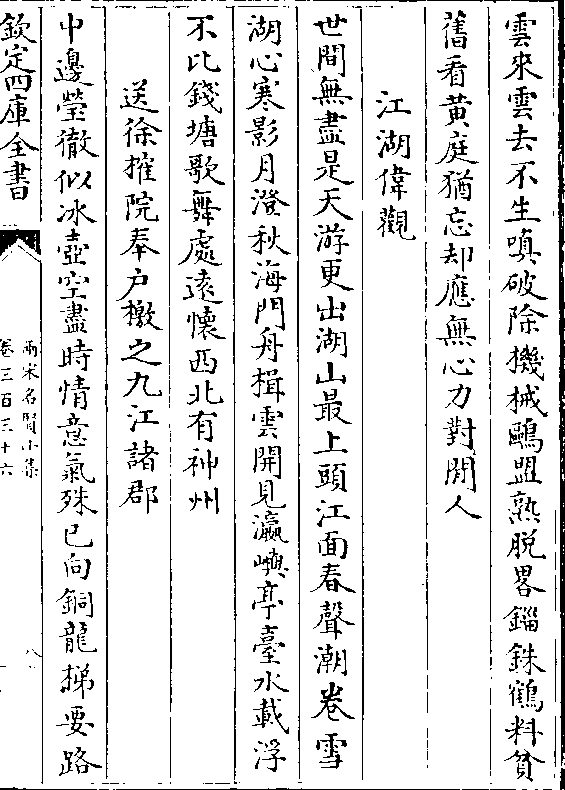 雲來雲去不生嗔破除機械鷗盟熟脫畧錙銖鶴料貧
舊看黄庭猶忘却應無心力對閒人
江湖偉觀
世間無盡是天游更出湖山最上頭江面春聲潮卷雪
湖心寒影月澄秋海門舟楫雲開見瀛嶼亭臺水載浮
不比錢塘歌舞處遠懷西北有神州
送徐搉院奉户檄之九江諸郡
中邊瑩徹似冰壺空盡時情意氣殊已向銅龍梯要路
欽定四庫全書
兩宋名賢小集
卷三百三十六
八